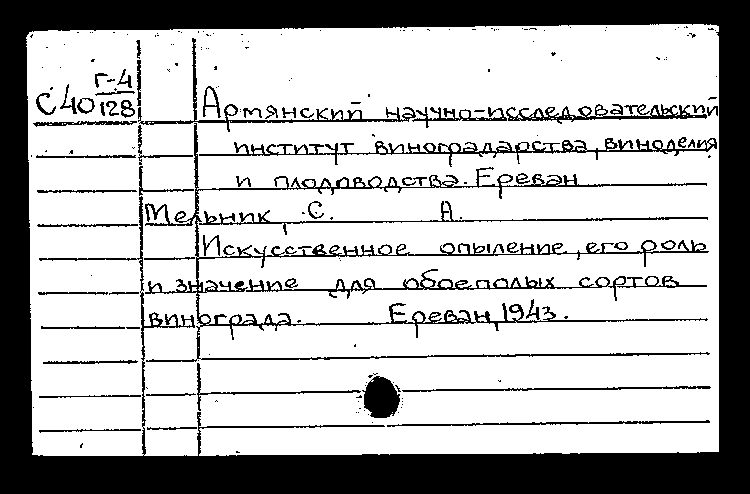 Г-4
С40 128
Армянский научно-исследовательский
институт виноградарства, виноделия
и плодоводства. Ереван
Мельник, С. А.
Искусственное опыление, его роль
и значение для обоеполых сортов
винограда. Ереван, 1943.